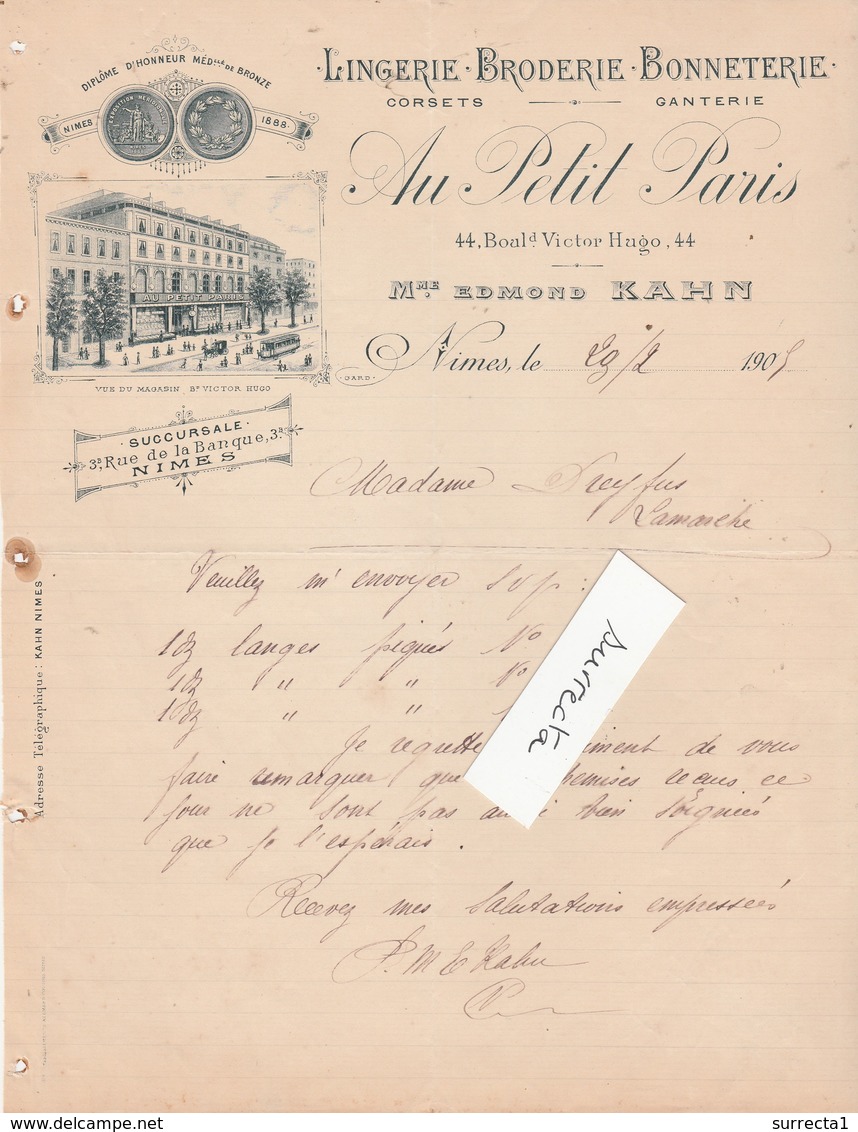 DIPLÔME D'HONNEUR MÉD^LLE DE BRONZE
NIMES 1888
EXPOSITION
·LINGERIE·BRODERIE·BONNETERIE·
CORSETS GANTERIE
Au Petit Paris
44, Boul^d Victor Hugo, 44
M^ME EDMOND KAHN
AU PETIT PARIS
VUE DU MAGASIN B^D VICTOR HUGO
GARD
Nimes, le 29/2 1905
·SUCCURSALE·
3^B Rue de la Banque, 3^B
NIMES
Madame Dreyfus
Lamarche
Adresse Télégraphique: KAHN NIMES
Veuillez m'envoyer svp:
1 dz langes piqués No
1 dz " " No
1 dz " "
Je regrette iment de vous
faire remarquer que hemises reçues ce
jour ne sont pas au i bien soignées
que je l'espérais.
Recevez mes salutations empressées
E Kahn
surrecta
surrecta1